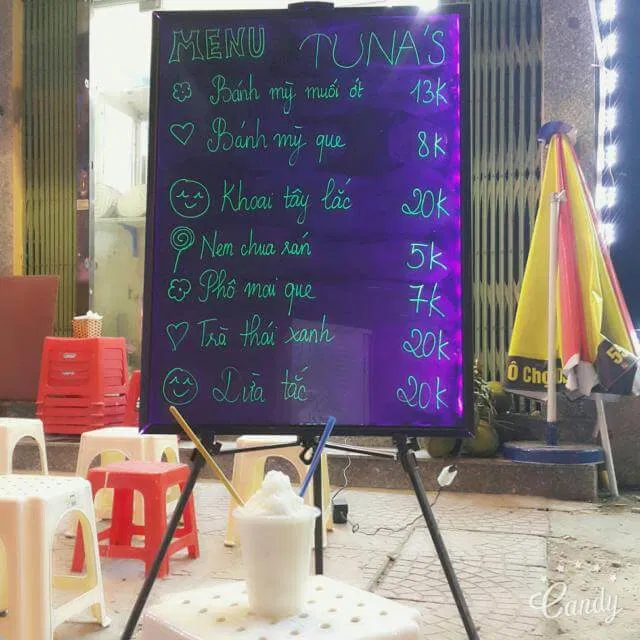 MENU TUNA'S
Bánh mỳ muối ớt 13k
Bánh mỳ que 8k
Khoai tây lắc 20k
Nem chua rán 5k
Phô mai que 7k
Trà thái xanh 20k
Dừa tắc 20k
Ô Che
Candy